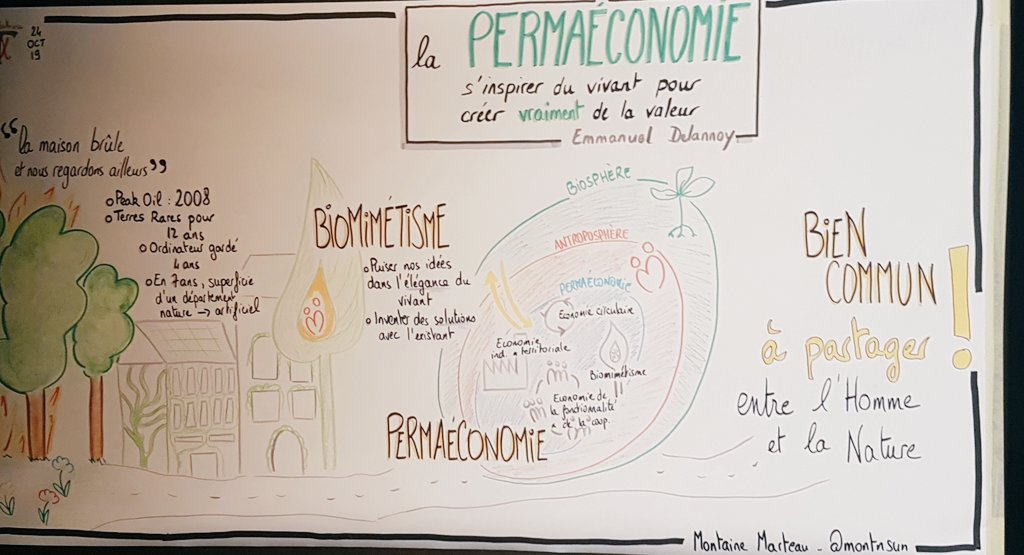 24
OCT
19
la PERMAÉCONOMIE
s'inspirer du vivant pour
créer vraiment de la valeur
Emmanuel Delannoy
“la maison brûle
et nous regardons ailleurs”
Peak Oil : 2008
Terres Rares pour
12 ans
Ordinateur gardé
4 ans
En 7 ans, superficie
d'un département
nature → artificiel
BIOMIMÉTISME
Puiser nos idées
dans l'élégance du
vivant
Inventer des solutions
avec l'existant
PERMAÉCONOMIE
BIOSPHÈRE
ANTROPOSPHÈRE
PERMAÉCONOMIE
Économie circulaire
Economie
ind. & territoriale
Biomimétisme
Economie de
la fonctionnalité
& de la coop.
BIEN
COMMUN !
à partager
entre l'Homme
et la Nature
Montaine Marteau - @montnsun